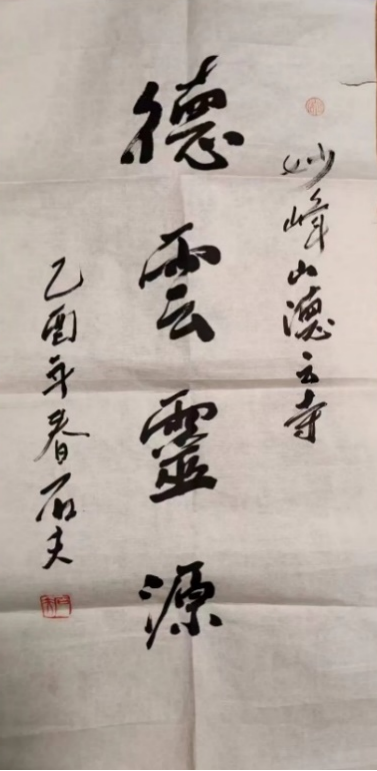 妙峰山德云寺
德雲靈源
乙酉年春石夫